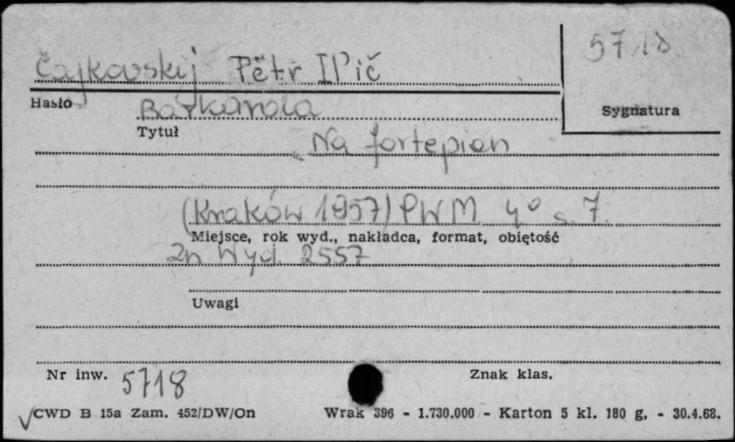 57 18
Čajkovskij Pëtr Il'ič
Hasło
Barkarola
Sygnatura
Tytuł
Na fortepian
(Kraków 1957) PWM 4° s. 7.
Miejsce, rok wyd., nakładca, format, objętość
Zn Wyd. 2557
Uwagi
Nr inw. 5718 Znak klas.
CWD B 15a Zam. 452/DW/On Wrak 396 - 1.730.000 - Karton 5 kl. 180 g, - 30.4.68.